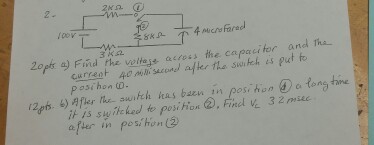 2. 2KΩ ①
100V ② 8KΩ 4 microfared
3KΩ
20pts a) Find the voltage across the capacitor and the
current 40 millisecond after the switch is put to
position ①.
12pts. b) After the switch has been in position ① a long time
it is switched to position ②, Find Vc 32 msec
after in position ②